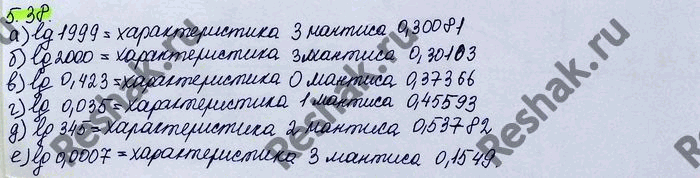 5.38.
а) lg 1999 = характеристика 3 мантиса 0,30081
б) lg 2000 = характеристика 3 мантиса 0,30103
в) lg 0,423 = характеристика 0 мантиса 0,37366
г) lg 0,035 = характеристика 1 мантиса 0,45593
д) lg 345 = характеристика 2 мантиса 0,53782
е) lg 0,0007 = характеристика 3 мантиса 0,1549.
Reshak.ru
Reshak.ru
Reshak.ru